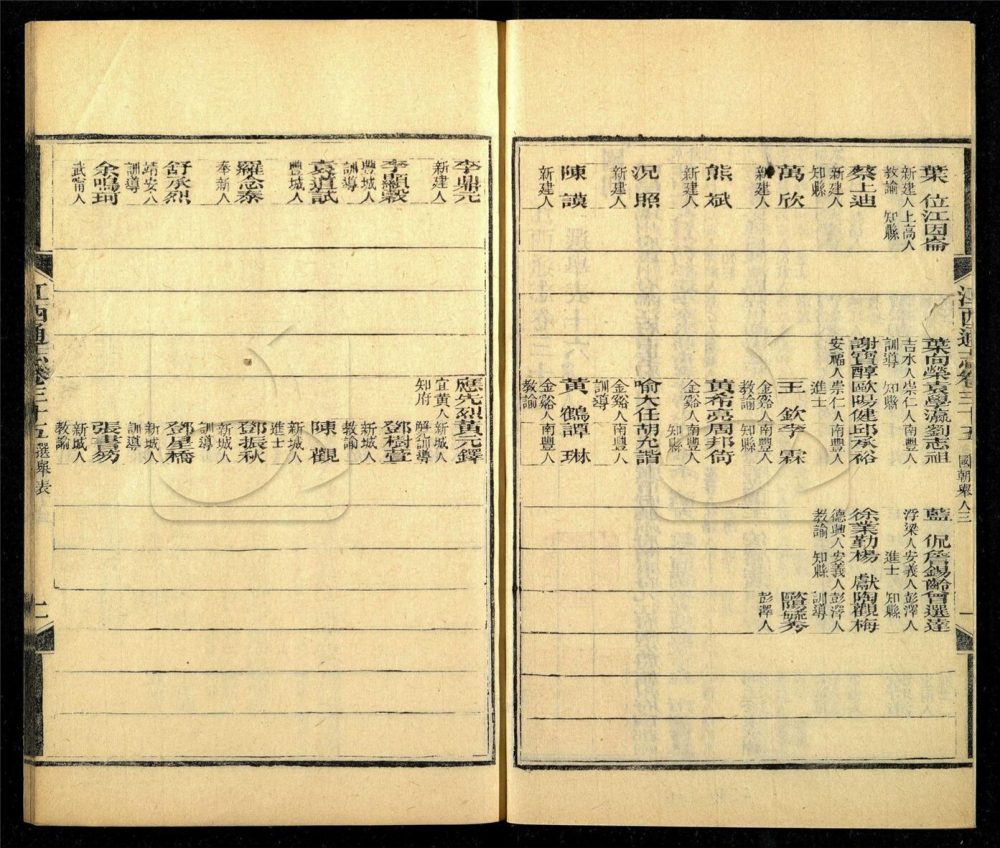 江西通志卷三十五 國朝舉人三 一
葉 位江因崙 葉向榮袁學瀛劉志祖 藍 侃詹錫齡曾選逹
新建人上高人 吉水人崇仁人南豐人 浮梁人安義人彭澤人
教諭 知縣 訓導 知縣 進士 知縣
蔡上迪 謝寶醇歐陽健邱承裕 徐業勤楊 獻陶觀梅
新建人 安福人崇仁人南豐人 德興人安義人彭澤人
知縣 進士 教諭 知縣 訓導
萬 欣 王 欽李 霖 毓秀
新建人 金谿人南豐人 彭澤人
教諭 知縣
熊 斌 黃希亮周邦倚
新建人 金谿人南豐人
知縣
况 照 喻大任胡允諧
新建人 金谿人南豐人
訓導
陳 謨 黃 鶴譚 琳
新建人 金谿人南豐人
教諭
李鼎元 應先烈黃元鐸
新建人 宜黃人新城人
知府 解元訓導
李顯毅 鄧樹萱
豐城人 新城人
訓導 教諭
袁道試 陳 觀
豐城人 新城人
進士
羅念泰 鄧振秋
奉新人 新城人
訓導
舒丞烈 鄧星橋
靖安人 新城人
訓導 訓導
余鳴珂 張書易
武甯人 新城人
教諭
江西通志卷三十五 選舉表 二